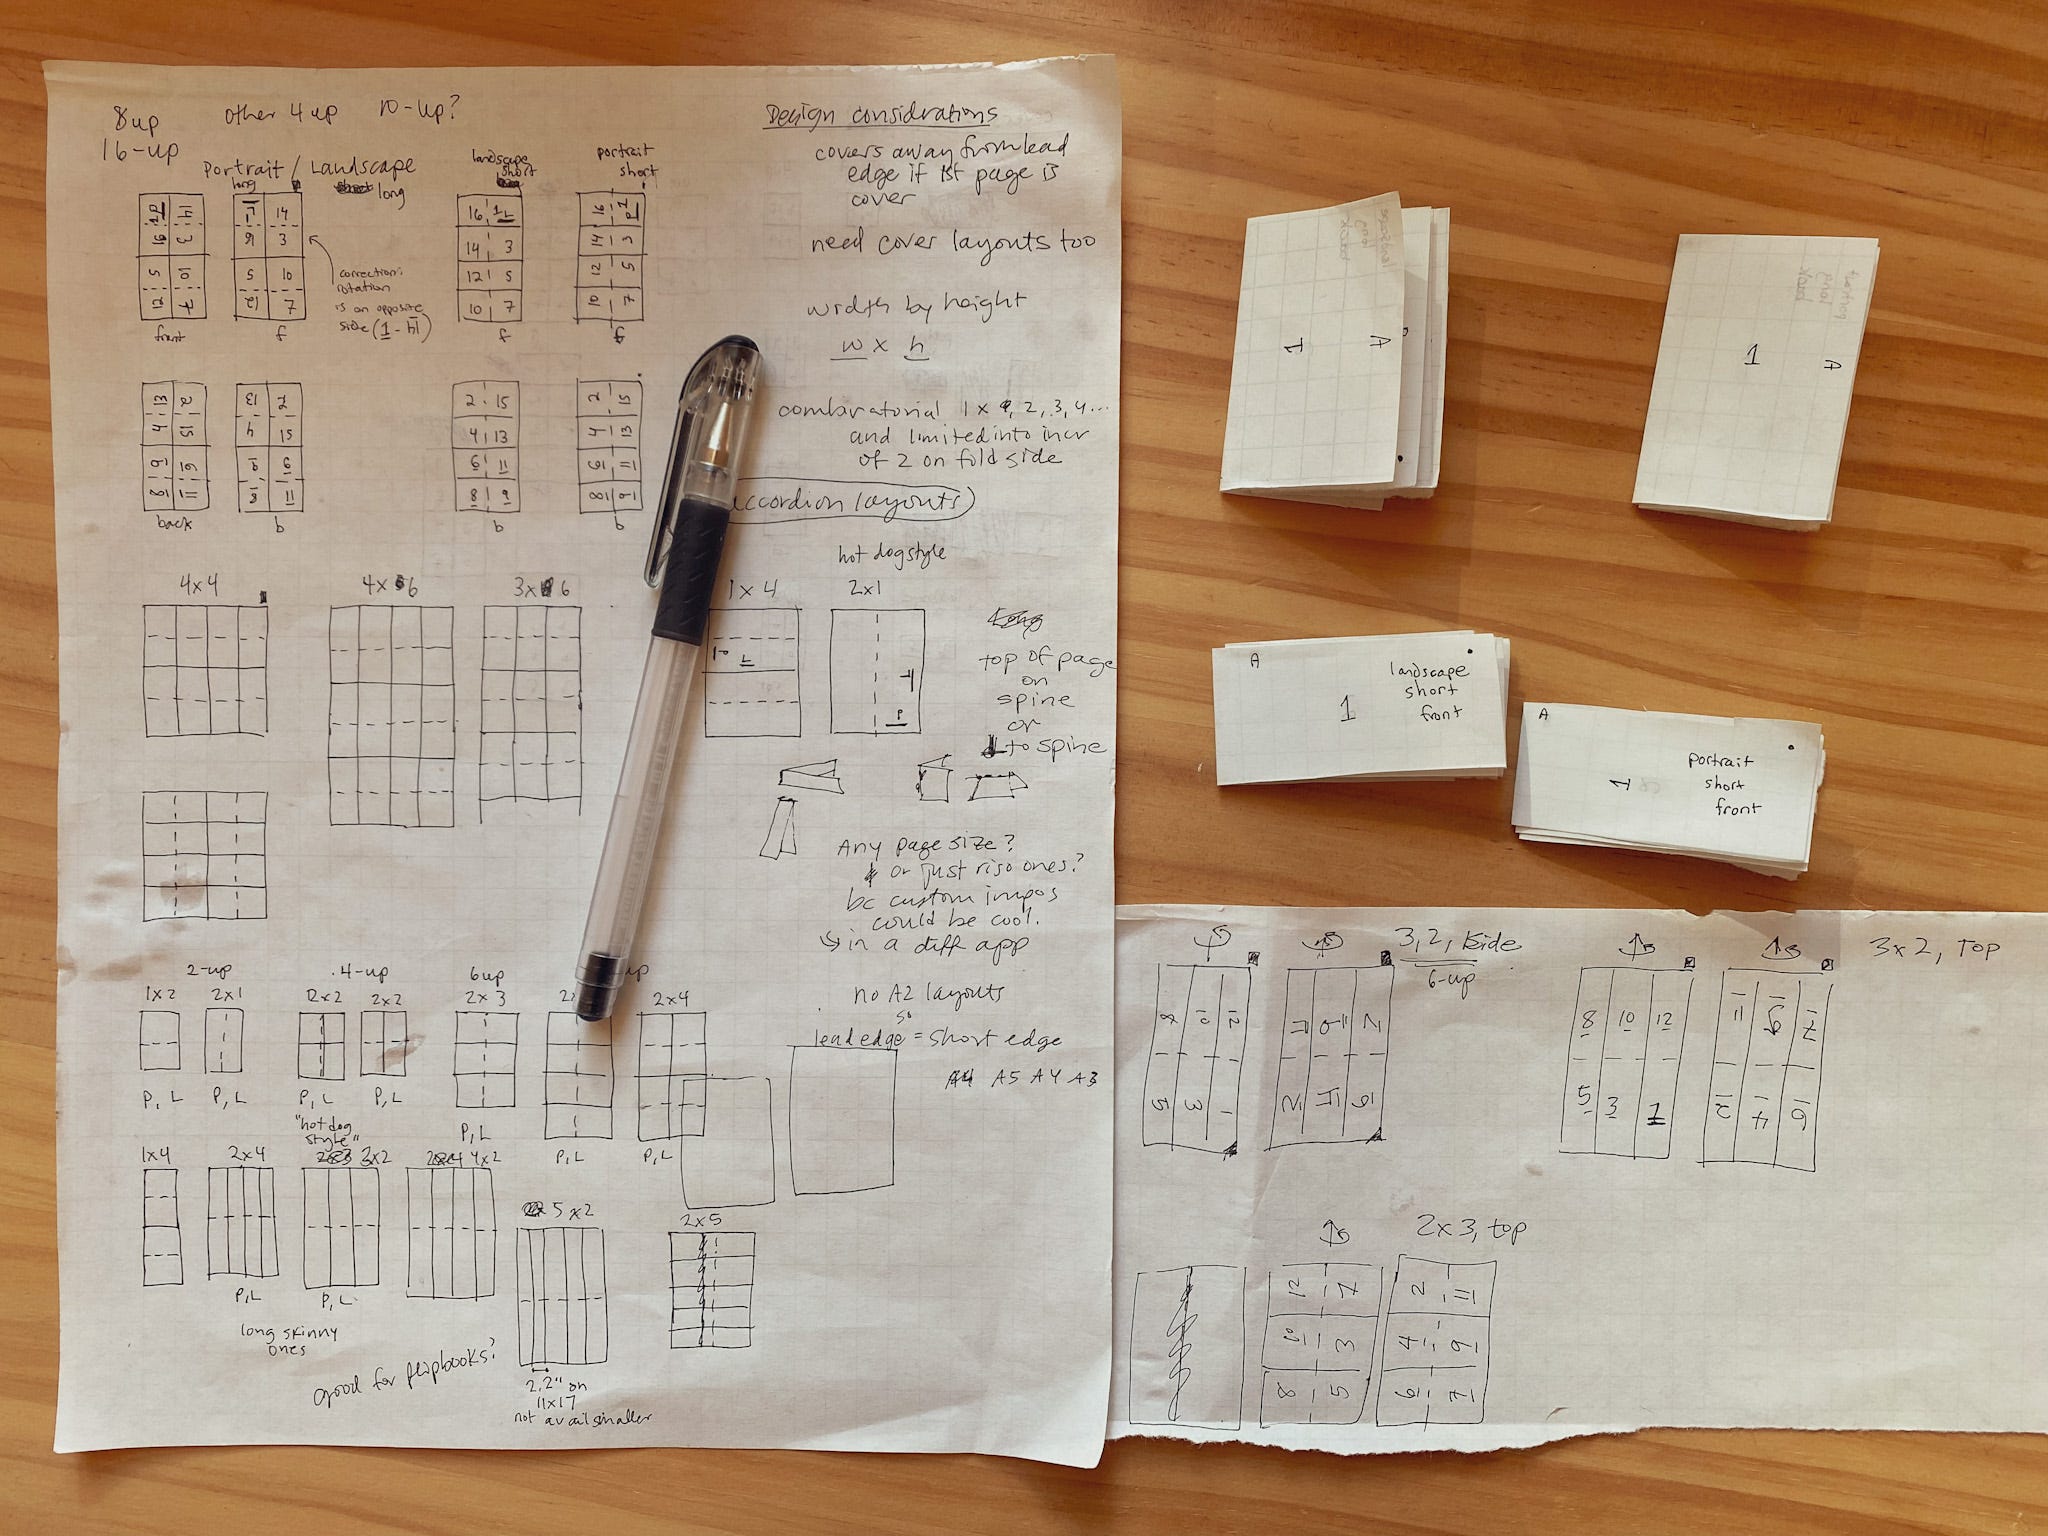 8up
16-up
other 4up
10-up?
Portrait / Landscape
long
long
landscape
short
portrait
short
16 1
14 3
12 5
10 7
14
3
5 10
12 7
16
14 3
12 5
10 7
correction:
rotation
is on opposite
side (1 -
front
f
f
f
2 15
4 13
6 11
8 9
13 2
4 15
8 11
2 15
4 13
6 11
8 9
back
b
b
b
4x4
4x 6
3x 6
1x4
hot dog style
2x1
Design considerations
covers away from lead
edge if 1st page is
cover
need cover layouts too
width by height
w x h
combinatorial 1 x 1, 2, 3, 4...
and limited into incr
of 2 on fold side
accordion layouts
top of page
on
spine
or
to spine
Any page size?
or just riso ones?
bc custom impos
could be cool.
in a diff app
no A2 layouts
so
lead edge = short edge
A5 A4 A3
2-up
1x2
2x1
P, L
P, L
4-up
2x2
2x2
P, L
P, L
"hotdog
style"
6up
2x3
P, L
up
2x4
P, L
P, L
1x4
2x4
P, L
3x2
P, L
4x2
long skinny
ones
good for flipbooks?
5x2
2.2" on
11x17
not avail smaller
2x5
1
A
1
A
A
1
landscape
short
front
A
1
portrait
short
front
3,2, side
6-up
8 10 12
5 3 1
3x2, Top
8 10 12
5 3 1
11 9 7
2 4 6
2x3, top
12 1
10 3
8 5
2 11
4 9
6 7